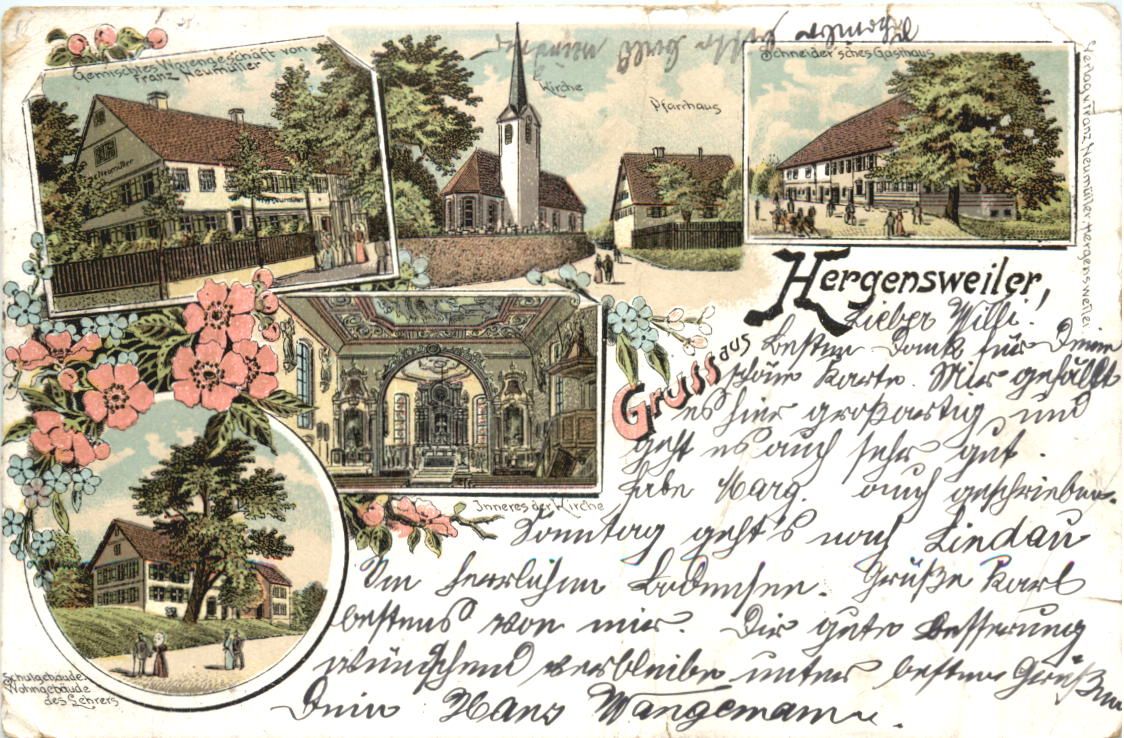 Gemischtes Warengeschäft von
Franz Neumüller
Neumüller
Kirche
Pfarrhaus
Schneider'sches Gasthaus
Verlag v. Franz Neumüller, Hergensweiler.
Inneres der Kirche
Schulgebäude,
Wohngebäude
des Lehrers
Gruss aus
Hergensweiler,
Lieber Willi.
Besten Dank für Deine
schöne Karte. Mir gefällt
es hier großartig und
geht es auch sehr gut.
habe Marg. auch geschrieben.
Sonntag geht's nach Lindau
Am herrlichen Bodensee. Grüße Karl
bestens von mir. Dir gute Besserung
wünschend verbleibe unter besten Grüßen
Dein Hans Wangemann.